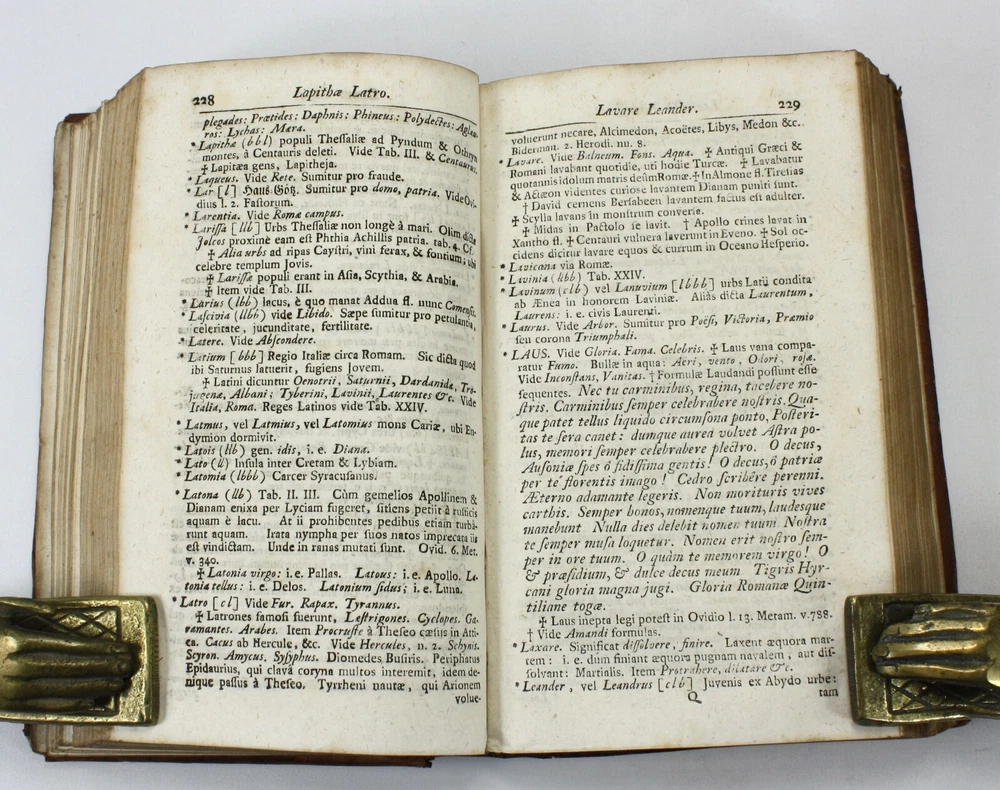 228
Lapithæ Latro.
plegades: Prœtides: Daphnis: Phineus: Polydectes: Aglau-
ros: Lychas: Mœra.
* Lapithæ (bbl) populi Theſſaliæ ad Pyndum & Othryn
montes, à Centauris deleti. Vide Tab. III. & Centaurus.
✠ Lapitæa gens, Lapitheja.
* Laqueus. Vide Rete. Sumitur pro fraude.
* Lar [l] Hauß-Götz. Sumitur pro domo, patria. Vide Ovi-
dius l. 2. Faſtorum.
* Larentia. Vide Romæ campus.
* Lariſſa [llb] Urbs Theſſaliæ non longè à mari. Olim dicta
Jolcos proximè eam eſt Phthia Achillis patria. tab. 4. Cf.
✠ Alia urbs ad ripas Cayſtri, vini ferax, & fontium; ubi
celebre templum Jovis.
✠ Lariſſæ populi erant in Aſia, Scythia, & Arabia.
✠ Item vide Tab. III.
* Larius (lbb) lacus, è quo manat Addua fl. nunc Comenſis.
* Laſcivia (llbb) vide Libido. Sæpe ſumitur pro petulantia,
celeritate, jucunditate, fertilitate.
* Latere. Vide Abſcondere.
* Latium [bbb] Regio Italiæ circa Romam. Sic dicta quod
ibi Saturnus latuerit, fugiens Jovem.
✠ Latini dicuntur Oenotrii, Saturnii, Dardanidæ, Tro-
jugenæ, Albani; Tyberini, Lavinii, Laurentes &c. Vide
Italia, Roma. Reges Latinos vide Tab. XXIV.
* Latmus, vel Latmius, vel Latomius mons Cariæ, ubi En-
dymion dormivit.
* Latois (llb) gen. idis, i. e. Diana.
* Lato (ll) Inſula inter Cretam & Lybiam.
* Latomia (lbbb) Carcer Syracuſanus.
* Latona (llb) Tab. II. III. Cùm gemellos Apollinem &
Dianam enixa per Lyciam fugeret, ſitiens petiit à ruſticis
aquam è lacu. At ii prohibentes pedibus etiam turbâ-
runt aquam. Irata nympha per ſuos natos imprecata iis
eſt vindictam. Unde in ranas mutati ſunt. Ovid. 6. Met.
v. 340.
✠ Latonia virgo: i. e. Pallas. Latous: i. e. Apollo. La-
tonia tellus: i. e. Delos. Latonium ſidus; i. e. Luna.
* Latro [cl] Vide Fur. Rapax. Tyrannus.
✠ Latrones famoſi fuerunt, Leſtrigones. Cyclopes. Ga-
ramantes. Arabes. Item Procruſte à Theſeo cæſus in Atti-
ca. Cacus ab Hercule, &c. Vide Hercules, n. 2. Schynis.
Scyron. Amycus. Syſyphus. Diomedes Buſiris. Periphatus
Epidaurius, qui clavâ coryna multos interemit, idem de-
nique paſſus à Theſeo. Tyrrheni nautæ, qui Arionem
volue-
Lavare Leander.
229
voluerunt necare, Alcimedon, Acoëtes, Libys, Medon &c.
Biderman. 2. Herodi. nu. 8.
* Lavare. Vide Balneum. Fons. Aqua. ✠ Antiqui Græci &
Romani lavabant quotidie, uti hodie Turcæ. ✠ Lavabatur
quotannis idolum matris deûm Romæ. ✠ In Almone fl. Tireſias
& Actæon videntes curioſe lavantem Dianam puniti ſunt.
† David cernens Berſabeen lavantem factus eſt adulter.
✠ Scylla lavans in monſtrum converſa.
✠ Midas in Pactolo ſe lavit. † Apollo crines lavat in
Xantho fl. ✠ Centauri vulnera laverunt in Eveno. ✠ Sol oc-
cidens dicitur lavare equos & currum in Oceano Heſperio.
* Lavicana via Romæ.
* Lavinia (lkbb) Tab. XXIV.
* Lavinum (clb) vel Lanuvium [lbbb] urbs Latii condita
ab Ænea in honorem Laviniæ. Aliàs dicta Laurentum,
Laurens: i. e. civis Laurenti.
* Laurus. Vide Arbor. Sumitur pro Poëſi, Victoria, Præmio
ſeu corona Triumphali.
* LAUS. Vide Gloria. Fama. Celebris. ✠ Laus vana compa-
ratur Fumo. Bullæ in aqua: Aëri, vento, Odori, roſæ.
Vide Inconſtans, Vanitas. † Formulæ Laudandi poſſunt eſſe
ſequentes. Nec tu carminibus, regina, tacebere no-
ſtris. Carminibus ſemper celebrabere noſtris. Qua-
que patet tellus liquido circumſona ponto, Poſteri-
tas te fera canet: dumque aurea volvet Aſtra po-
lus, memori ſemper celebrabere plectro. O decus,
Auſoniæ ſpes ô fidiſſima gentis! O decus, ô patriæ
per te florentis imago! Cedro ſcribêre perenni.
Æterno adamante legeris. Non morituris vives
carthis. Semper honos, nomenque tuum, laudesque
manebunt Nulla dies delebit nomen tuum Noſtra
te ſemper muſa loquetur. Nomen erit noſtro ſem-
per in ore tuum. O quàm te memorem virgo! O
& præſidium, & dulce decus meum Tigris Hyr-
cani gloria magna jugi. Gloria Romanæ Quin-
tiliane togæ.
✠ Laus inepta legi poteſt in Ovidio l. 13. Metam. v. 788.
† Vide Amandi formulas.
* Laxare. Significat diſſolvere, finire. Laxent æquora mar-
tem: i. e. dum finiant æquora pugnam navalem, aut diſ-
ſolvant: Martialis. Item Protrahere, dilatare &c.
* Leander, vel Leandrus [clb] Juvenis ex Abydo urbe:
Q
tam